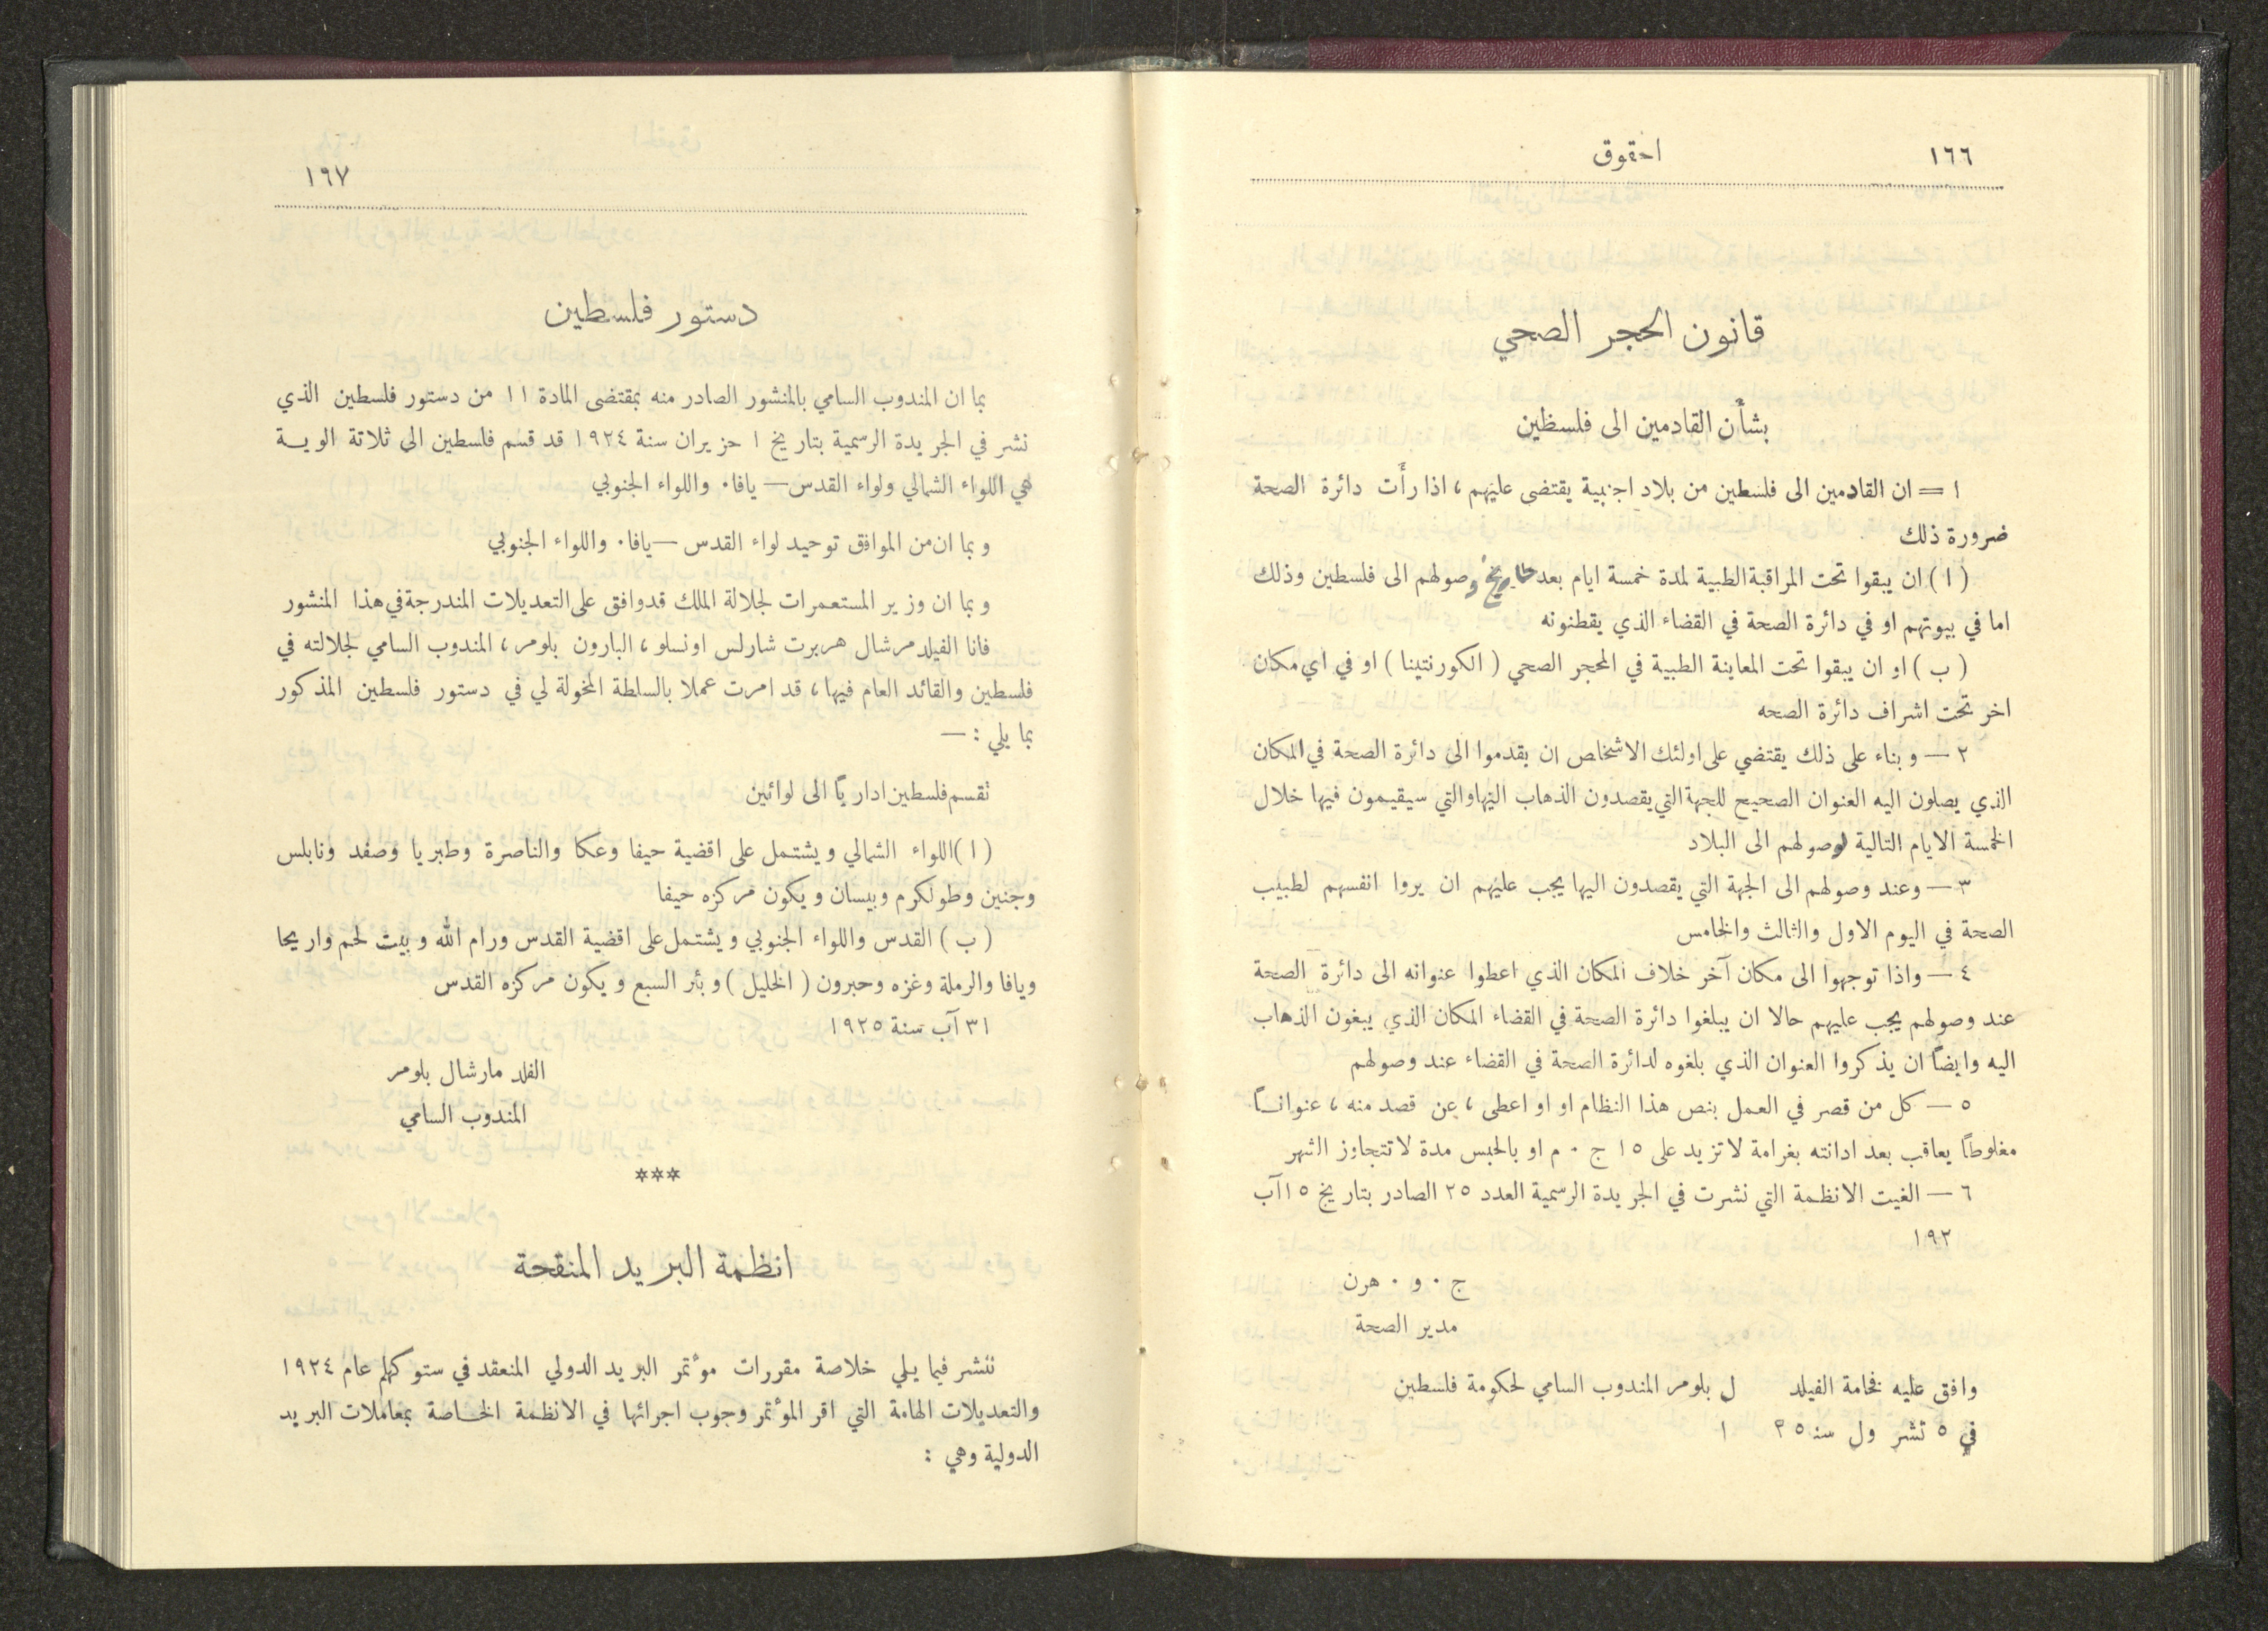 ١٦٦
الحقوق
قانون الحجر الصحي
بشأن القادمين الى فلسطين
١ = ان القادمين الى فلسطين من بلاد اجنبية يقتضى عليهم ، اذا رأت دائرة الصحة
ضرورة ذلك
( ا ) ان يبقوا تحت المراقبة الطبية لمدة خمسة ايام بعد تاريخ وصولهم الى فلسطين وذلك
اما في بيوتهم او في دائرة الصحة في القضاء الذي يقطنونه
( ب ) او ان يبقوا تحت المعاينة الطبية في المحجر الصحي ( الكورنتينا ) او في اي مكان
اخر تحت اشراف دائرة الصحه
٢ — وبناء على ذلك يقتضي على اولئك الاشخاص ان يقدموا الى دائرة الصحة في المكان
الذي يصلون اليه العنوان الصحيح للجهة التي يقصدون الذهاب اليها والتي سيقيمون فيها خلال
الخمسة الايام التالية لوصولهم الى البلاد
٣ — وعند وصولهم الى الجهة التي يقصدون اليها يجب عليهم ان يروا انفسهم لطبيب
الصحة في اليوم الاول والثالث والخامس
٤ — واذا توجهوا الى مكان آخر خلاف المكان الذي اعطوا عنوانه الى دائرة الصحة
عند وصولهم يجب عليهم حالا ان يبلغوا دائرة الصحة في القضاء المكان الذي يبغون الذهاب
اليه وايضاً ان يذكروا العنوان الذي بلغوه لدائرة الصحة في القضاء عند وصولهم
٥ — كل من قصر في العمل بنص هذا النظام او او اعطى ، عن قصد منه ، عنوانـاً
مغلوطاً يعاقب بعد ادانته بغرامة لا تزيد على ١٥ ج . م او بالحبس مدة لا تتجاوز الشهر
٦ — الغيت الانظمة التي نشرت في الجريدة الرسمية العدد ٢٥ الصادر بتاريخ ١٥ آب
١٩٢
ج . و . هرن
مدير الصحة
وافق عليه فخامة الفيلد ل بلومر المندوب السامي لحكومة فلسطين
في ٥ تشر ول سنة ٢٥ ١
١٦٧
دستور فلسطين
بما ان المندوب السامي بالمنشور الصادر منه بمقتضى المادة ١١ من دستور فلسطين الذي
نشر في الجريدة الرسمية بتاريخ ١ حزيران سنة ١٩٢٤ قد قسم فلسطين الى ثلاثة الويـة
هي اللواء الشمالي ولواء القدس — يافا . واللواء الجنوبي
وبما ان من الموافق توحيد لواء القدس — يافا . واللواء الجنوبي
وبما ان وزير المستعمرات لجلالة الملك قد وافق على التعديلات المندرجة في هذا المنشور
فانا الفيلد مرشال هربرت شارلس اونسلو ، البارون بلومر ، المندوب السامي لجلالته في
فلسطين والقائد العام فيها ، قد امرت عملا بالسلطة المخولة لي في دستور فلسطين المذكور
بما يلي : —
تقسم فلسطين ادارياً الى لوائين
( ا ) اللواء الشمالي ويشتمل على اقضية حيفا وعكا والناصرة وطبريا وصفد ونابلس
وجنين وطولكرم وبيسان ويكون مركزه حيفا
( ب ) القدس واللواء الجنوبي ويشتمل على اقضية القدس ورام الله وبيت لحم واريحا
ويافا والرملة وغزه وحبرون ( الخليل ) وبئر السبع ويكون مركزه القدس
٣١ آب سنة ١٩٢٥
الفلد مارشال بلومر
المندوب السامي
***
انظمة البريد المنقحة
ننشر فيما يلي خلاصة مقررات مؤتمر البريد الدولي المنعقد في ستوكهلم عام ١٩٢٤
والتعديلات الهامة التي اقر المؤتمر وجوب اجرائها في الانظمة الخـاصة بمعاملات البريد
الدولية وهي :